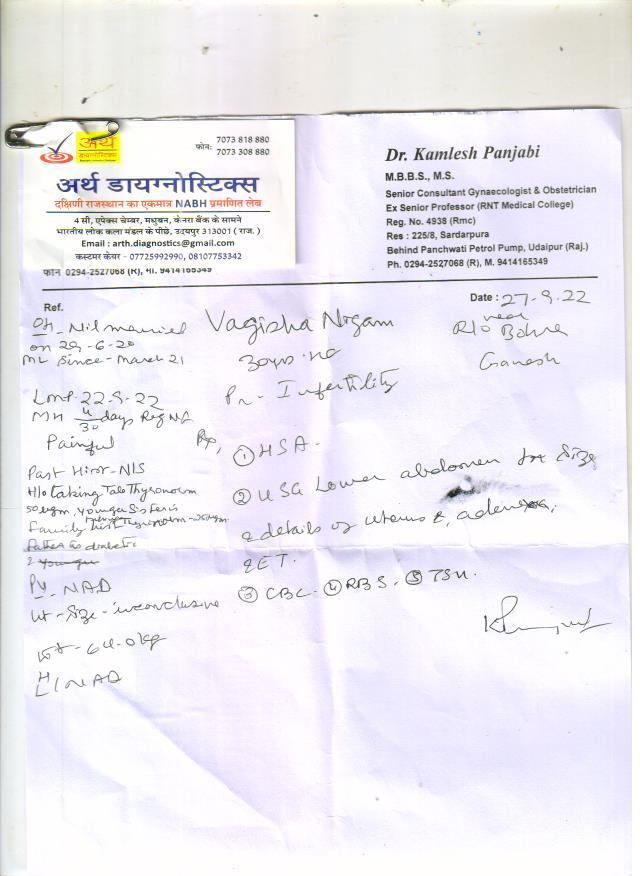 अर्थ
डायग्नोस्टिक्स
फोन: 7073 818 880
7073 308 880
अर्थ डायग्नोस्टिक्स
दक्षिणी राजस्थान का एकमात्र NABH प्रमाणित लेब
4 सी, एपेक्स चेम्बर, मधुबन, केनरा बैंक के सामने
भारतीय लोक कला मंडल के पीछे, उदयपुर 313001 ( राज. )
Email : arth.diagnostics@gmail.com
कस्टमर केयर - 07725992990, 08107753342
फोन 0294-2527068 (R), मो. 9414165349
Dr. Kamlesh Panjabi
M.B.B.S., M.S.
Senior Consultant Gynaecologist & Obstetrician
Ex Senior Professor (RNT Medical College)
Reg. No. 4938 (Rmc)
Res : 225/8, Sardarpura
Behind Panchwati Petrol Pump, Udaipur (Raj.)
Ph. 0294-2527068 (R), M. 9414165349
Ref.
Date : 27-9-22
Vagisha Nigam
near
R/o Bohra
Ganesh
30yrs
Pr - Infertility
OH - Nil married
on 29-6-20
ML Since - March 21
LMP - 22-9-22
MH 4/30 days Reg
Painful
Past Histr - NIS
H/o taking Tab Thyronorm
50 ugm, younger Sister is
Family hist
Father is diabetic
PV - NAD
Ut - Size - inconclusive
Wt - 64.0kg
H/L NAD
① HSA.
② USG Lower abdomen for Size
& details of uterus &
& ET.
③ CBC. ④ RBS. ⑤ TSH.